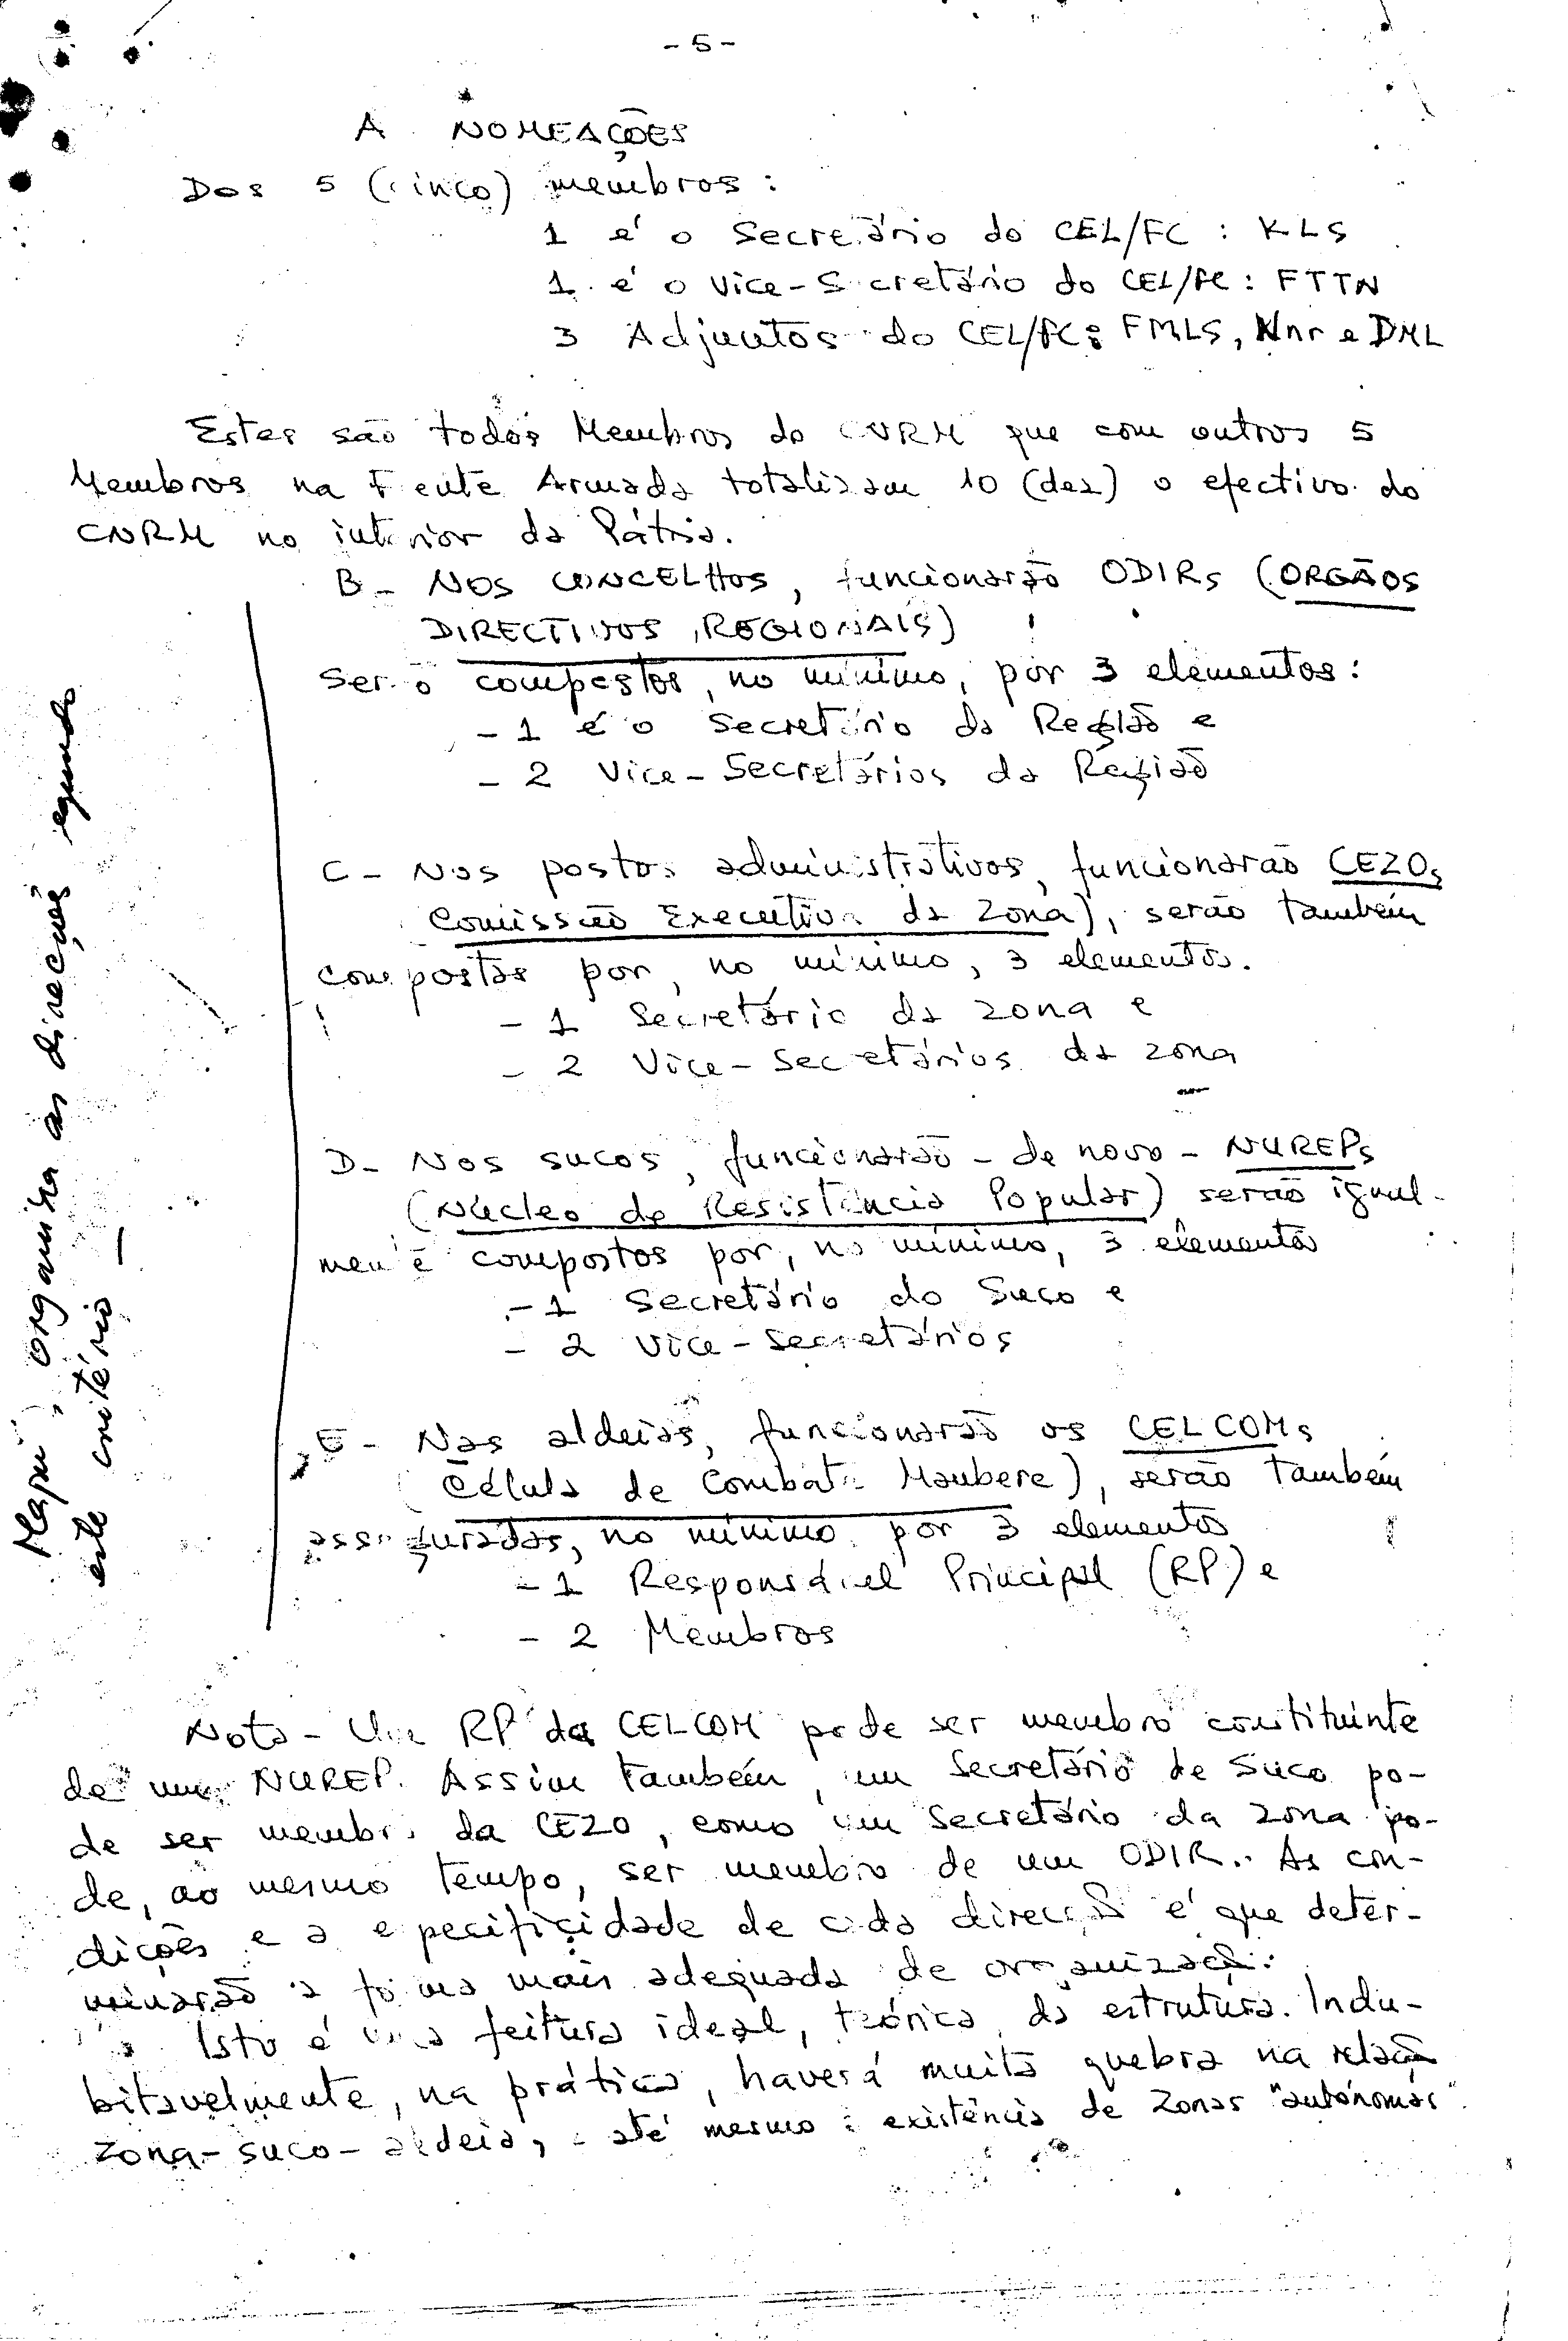 - 5 -
A NOMEAÇÕES
Dos 5 (cinco) membros:
1 é o Secretário do CEL/FC : KLS
1 é o Vice-Secretário do CEL/FC : FTTN
3 Adjuntos do CEL/FC: FMLS, Nnr e DML
Estes são todos Membros do CNRM que com outros 5
Membros na Frente Armada totalizam 10 (dez) o efectivo do
CNRM no interior da Pátria.
B - NOS CONCELHOS, funcionarão ODIRs (ORGÃOS
DIRECTIVOS REGIONAIS)
Serão compostos, no mínimo, por 3 elementos:
- 1 é o Secretário da Região e
- 2 Vice-Secretários da Região
C - Nos postos administrativos, funcionarão CEZOs
(Comissão Executiva da Zona), serão também
compostas por, no mínimo, 3 elementos.
- 1 Secretário da Zona e
- 2 Vice-Secretários da Zona
D - Nos sucos, funcionarão - de novo - NUREPs
(Núcleo de Resistência Popular) serão igual-
mente compostos por, no mínimo, 3 elementos
- 1 Secretário do Suco e
- 2 Vice-Secretários
E - Nas aldeias, funcionarão os CELCOMs
(Célula de Combate Maubere), serão também
asseguradas, no mínimo por 3 elementos
- 1 Responsável Principal (RP) e
- 2 Membros
Nota - Um RP da CELCOM pode ser membro constituinte
de um NUREP. Assim também, um Secretário de Suco po-
de ser membro da CEZO, como um Secretário da Zona po-
de, ao mesmo tempo, ser membro de um ODIR. As con-
dições e a especificidade de cada direcção é que deter-
minarão a forma mais adequada de organização.
Isto é uma feitura ideal, teórica, da estrutura. Indu-
bitavelmente, na prática, haverá muita quebra na relação
Zona-suco-aldeia, e até mesmo a existência de Zonas "autónomas"
organiza as direcções segundo
este critério -